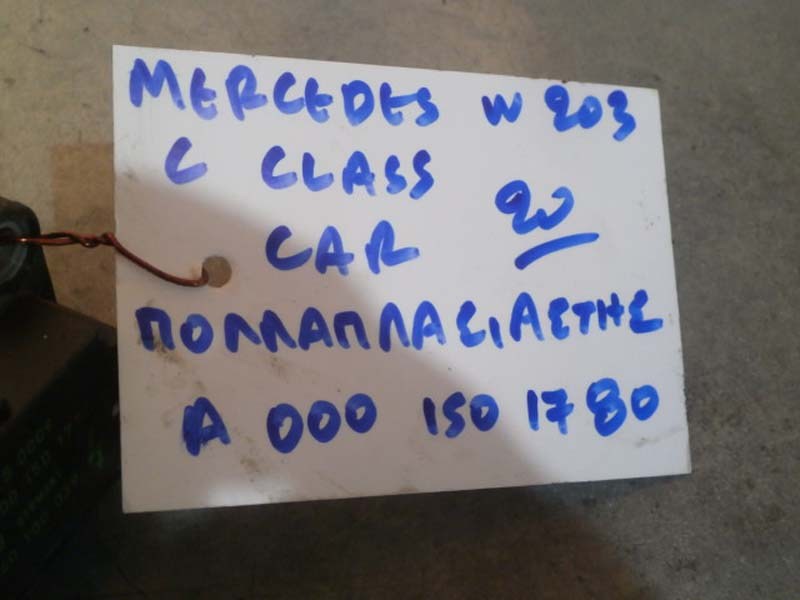 MERCEDES W 203
C CLASS
20
CAR
ΠΟΛΛΑΠΛΑΣΙΑΣΤΗΣ
A 000 150 1780